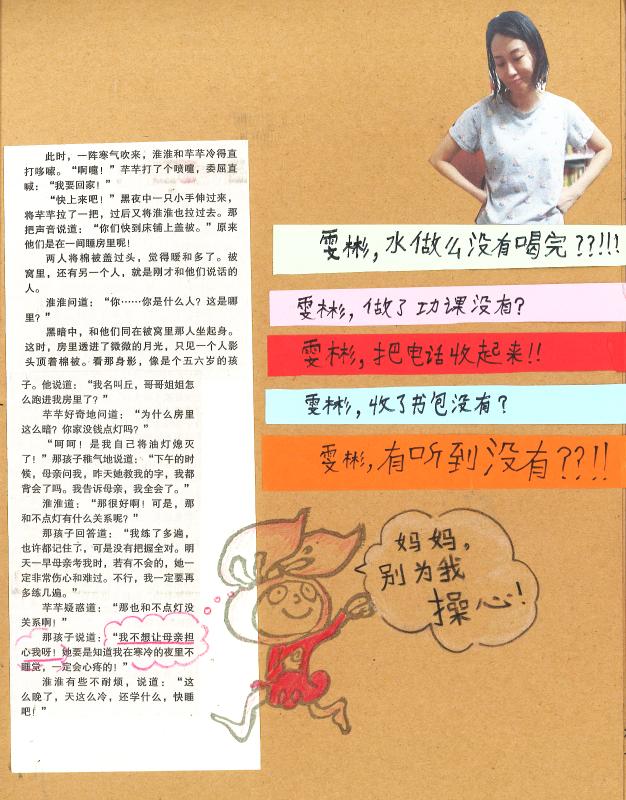 此时，一阵寒气吹来，淮淮和芊芊冷得直
打哆嗦。“啊嚏！”芊芊打了个喷嚏，委屈直
喊：“我要回家！”
“快上来吧！”黑夜中一只小手伸过来，
将芊芊拉了一把，过后又将淮淮也拉过去。那
把声音说道：“你们快到床铺上盖被。”原来
他们是在一间睡房里呢！
两人将棉被盖过头，觉得暖和多了。被
窝里，还有另一个人，就是刚才和他们说话的
人。
淮淮问道：“你……你是什么人？这是哪
里？”
黑暗中，和他们同在被窝里那人坐起身。
这时，房里透进了微微的月光，只见一个人影
头顶着棉被。看那身影，像是个五六岁的孩
子。他说道：“我名叫丘，哥哥姐姐怎
么跑进我房里了？”
芊芊好奇地问道：“为什么房里
这么暗？你家没钱点灯吗？”
“呵呵！是我自己将油灯熄灭
了！”那孩子稚气地说道：“下午的时
候，母亲问我，昨天她教我的字，我都
背会了吗。我告诉母亲，我全会了。”
淮淮道：“那很好啊！可是，那
和不点灯有什么关系呢？”
那孩子回答道：“我练了多遍，
也许都记住了，可是没有把握全对。明
天一早母亲考我时，若有不会的，她一
定非常伤心和难过。不行，我一定要再
多练几遍。”
芊芊疑惑道：“那也和不点灯没
关系啊！”
那孩子说道：“我不想让母亲担
心我呀！她要是知道我在寒冷的夜里不
睡觉，一定会心疼的！”
淮淮有些不耐烦，说道：“这
么晚了，天这么冷，还学什么，快睡
吧！”
雯彬，水做么没有喝完??!!!
雯彬，做了功课没有?
雯彬，把电话收起来!!
雯彬，收了书包没有?
雯彬，有听到没有??!!
妈妈，
别为我
操心!